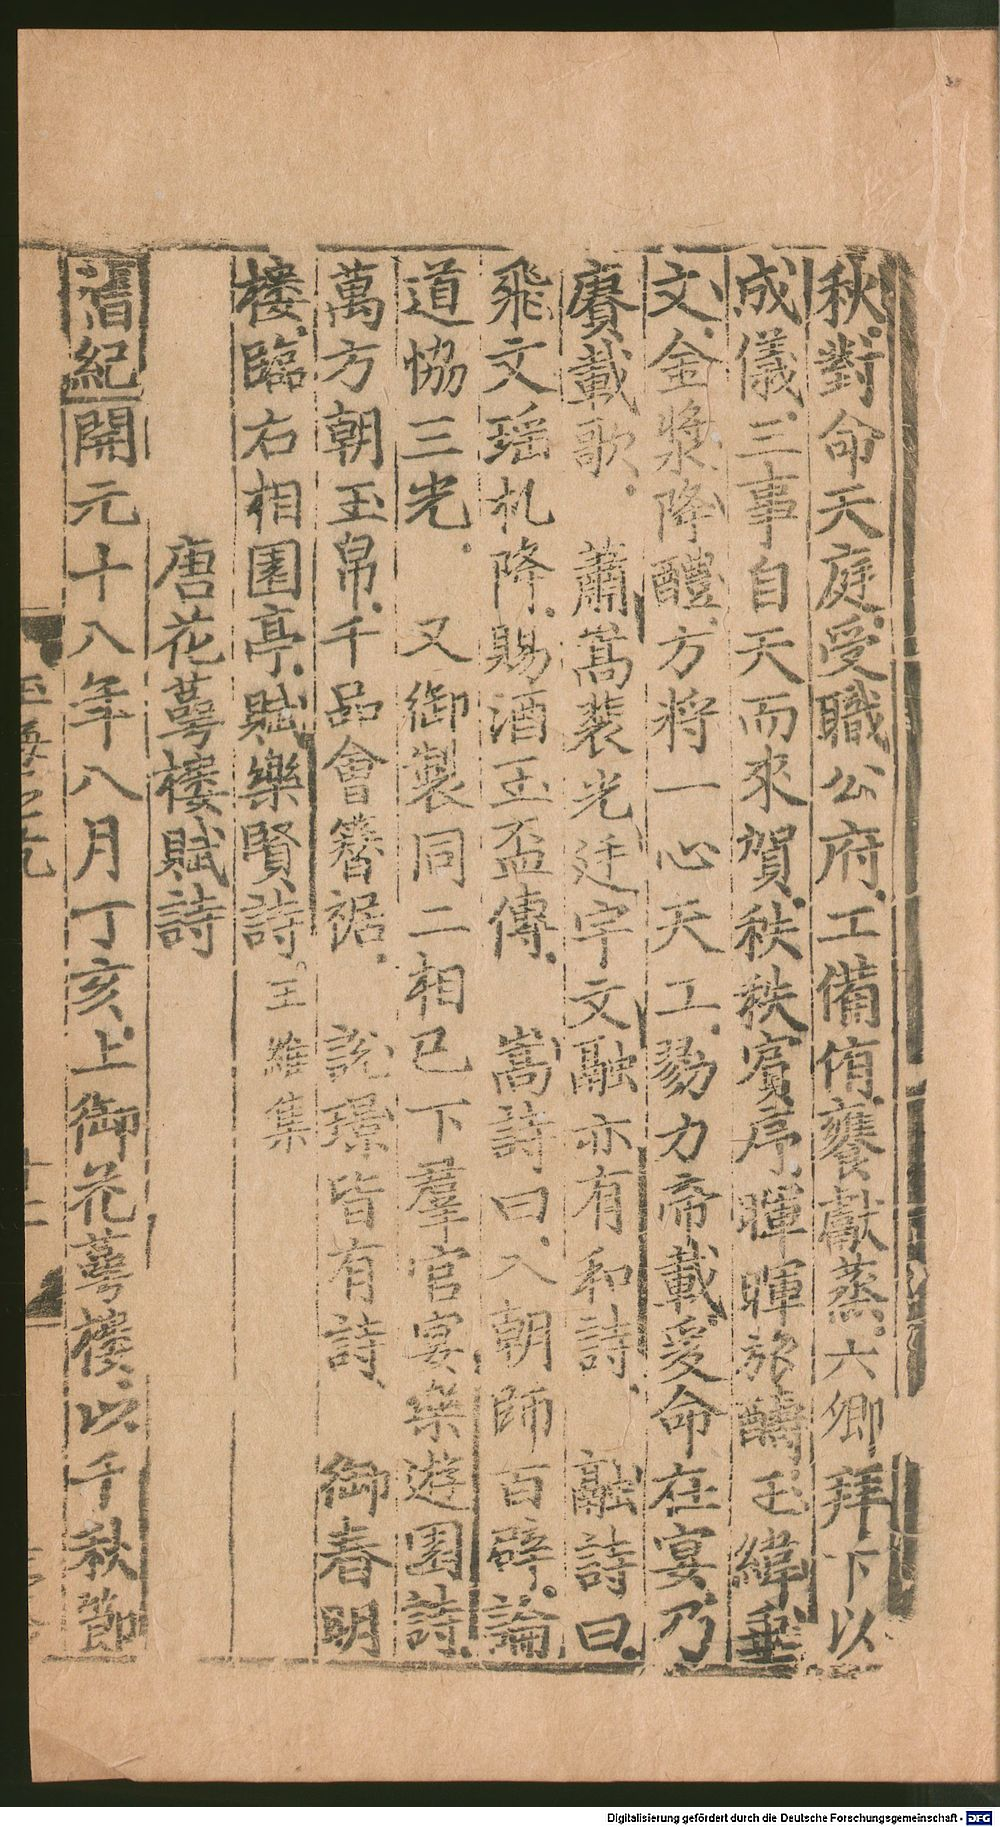 秋對命天庭受職公府工備侑饔獻蒸六卿拜下以
成儀三事自天而來賀秩秩賓序暉暉旅酬玉緯垂
文金漿降醴方將一心天工勠力帝載爰命在宴乃
賡載歌 蕭嵩裴光廷宇文融亦有和詩 融詩曰
飛文瑶札降賜酒玉盃傳 嵩詩曰入朝師百辟論
道恊三光 又御製同二相已下羣官宴樂遊園詩
萬方朝玉帛千品會簪裾 說璟皆有詩 御春明
樓臨右相園亭賦樂賢詩 王維集
唐花萼樓賦詩
舊紀開元十八年八月丁亥上御花萼樓以千秋節
Digitalisierung gefördert durch die Deutsche Forschungsgemeinschaft - DFG